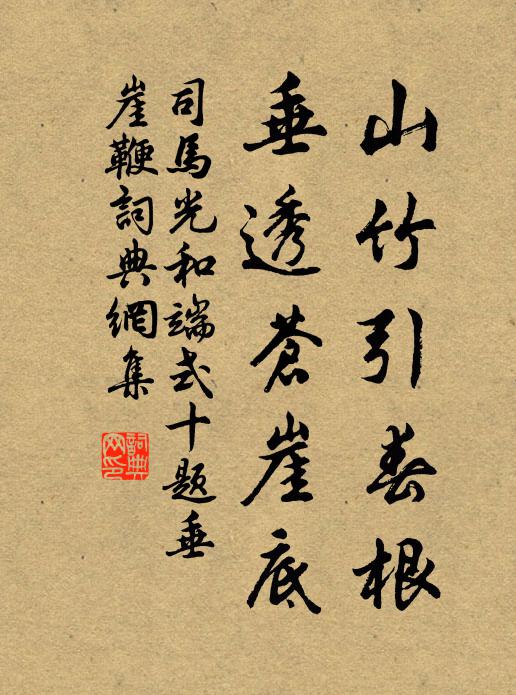 山竹引春根
垂透蒼崖底
司馬光和端式十題垂
崖鞭詞典網集
詞典
网印